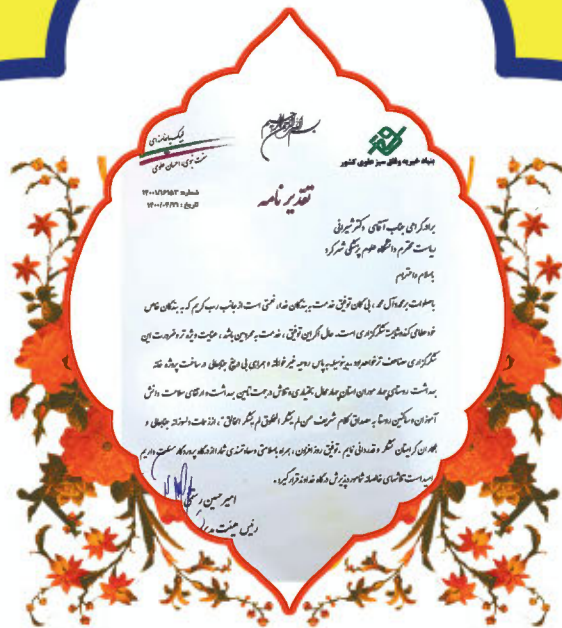 بنیاد خیریه وفاق سبز علوی کشور
لبیک یا خامنه‌ای
سنت نبوی، احسان علوی
شماره: ۱۴۰۰۱/۱۶۱۵۳
تقدیر نامه
برادر گرامی جناب آقای دکتر شیرانی
ریاست محترم دانشگاه علوم پزشکی شهرکرد
باسلام و احترام
باصلوات بر محمد و آل محمد ، بی گمان توفیق خدمت به بندگان خدا، نعمتی است از جانب رب کریم که به بندگان خاص
خود عطا می کند و شایسته شکرگزاری است. حال اگر این توفیق ، خدمت به محرومین باشد ، عنایت ویژه تر و ضرورت این
شکرگزاری مضاعف تر خواهد بود. بدینوسیله به پاس روحیه خیر خواهانه و همراهی بی دریغ جنابعالی در ساخت پروژه خانه
بهداشت روستای چهار محال بختیاری و تلاش در جهت تامین بهداشت و ارتقای سلامت دانش
آموزان و ساکنین روستا به مصداق کلام شریف «من لم یشکر المخلوق لم یشکر الخالق» ، از زحمات دلسوزانه جنابعالی و
همکاران گرامیتان تشکر و قدردانی نمایم . توفیق روز افزون ، همراه با سلامتی و سعادتمندی شما را از درگاه پروردگار مسئلت داریم
امید است تلاشهای خالصانه شما مورد پذیرش درگاه خداوند قرار گیرد .
امیر حسین
رئیس هیئت مدیره